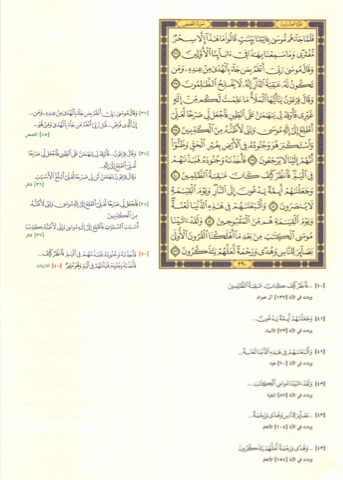 الجزء العشرون
سورة القصص
فَلَمَّا جَآءَهُم مُّوسَىٰ بِـَٔايَٰتِنَا بَيِّنَٰتٍ قَالُوا۟ مَا هَٰذَآ إِلَّا سِحْرٌ
مُّفْتَرًى وَمَا سَمِعْنَا بِهَٰذَا فِىٓ ءَابَآئِنَا ٱلْأَوَّلِينَ ٣٦
وَقَالَ مُوسَىٰ رَبِّىٓ أَعْلَمُ بِمَن جَآءَ بِٱلْهُدَىٰ مِنْ عِندِهِۦ وَمَن
تَكُونُ لَهُۥ عَٰقِبَةُ ٱلدَّارِ إِنَّهُۥ لَا يُفْلِحُ ٱلظَّٰلِمُونَ ٣٧
وَقَالَ فِرْعَوْنُ يَٰٓأَيُّهَا ٱلْمَلَأُ مَا عَلِمْتُ لَكُم مِّنْ إِلَٰهٍ
غَيْرِى فَأَوْقِدْ لِى يَٰهَٰمَٰنُ عَلَى ٱلطِّينِ فَٱجْعَل لِّى صَرْحًا لَّعَلِّىٓ
أَطَّلِعُ إِلَىٰٓ إِلَٰهِ مُوسَىٰ وَإِنِّى لَأَظُنُّهُۥ مِنَ ٱلْكَٰذِبِينَ ٣٨
وَٱسْتَكْبَرَ هُوَ وَجُنُودُهُۥ فِى ٱلْأَرْضِ بِغَيْرِ ٱلْحَقِّ وَظَنُّوٓا۟
أَنَّهُمْ إِلَيْنَا لَا يُرْجَعُونَ ٣٩ فَأَخَذْنَٰهُ وَجُنُودَهُۥ فَنَبَذْنَٰهُمْ
فِى ٱلْيَمِّ فَٱنظُرْ كَيْفَ كَانَ عَٰقِبَةُ ٱلظَّٰلِمِينَ ٤٠
وَجَعَلْنَٰهُمْ أَئِمَّةً يَدْعُونَ إِلَى ٱلنَّارِ وَيَوْمَ ٱلْقِيَٰمَةِ
لَا يُنصَرُونَ ٤١ وَأَتْبَعْنَٰهُمْ فِى هَٰذِهِ ٱلدُّنْيَا لَعْنَةً
وَيَوْمَ ٱلْقِيَٰمَةِ هُم مِّنَ ٱلْمَقْبُوحِينَ ٤٢ وَلَقَدْ ءَاتَيْنَا
مُوسَى ٱلْكِتَٰبَ مِنۢ بَعْدِ مَآ أَهْلَكْنَا ٱلْقُرُونَ ٱلْأُولَىٰ
بَصَآئِرَ لِلنَّاسِ وَهُدًى وَرَحْمَةً لَّعَلَّهُمْ يَتَذَكَّرُونَ ٤٣
٣٩٠
(٣٧) وَقَالَ مُوسَىٰ رَبِّىٓ أَعْلَمُ بِمَن جَآءَ بِٱلْهُدَىٰ مِنْ عِندِهِۦ وَمَن...
[٨٥] القصص
(٣٨) وَقَالَ فِرْعَوْنُ... فَأَوْقِدْ لِى يَٰهَٰمَٰنُ عَلَى ٱلطِّينِ فَٱجْعَل لِّى صَرْحًا
وَقَالَ فِرْعَوْنُ يَٰهَٰمَٰنُ ٱبْنِ لِى صَرْحًا لَّعَلِّىٓ أَبْلُغُ ٱلْأَسْبَٰبَ
[٣٦] غافر
(٣٨) فَٱجْعَل لِّى صَرْحًا لَّعَلِّىٓ أَطَّلِعُ إِلَىٰٓ إِلَٰهِ مُوسَىٰ وَإِنِّى لَأَظُنُّهُۥ
مِنَ ٱلْكَٰذِبِينَ
أَسْبَٰبَ ٱلسَّمَٰوَٰتِ فَأَطَّلِعَ إِلَىٰٓ إِلَٰهِ مُوسَىٰ وَإِنِّى لَأَظُنُّهُۥ كَٰذِبًا
[٣٧] غافر
(٤٠) فَأَخَذْنَٰهُ وَجُنُودَهُۥ فَنَبَذْنَٰهُمْ فِى ٱلْيَمِّ فَٱنظُرْ كَيْفَ...
فَأَخَذْنَٰهُ وَجُنُودَهُۥ فَنَبَذْنَٰهُمْ فِى ٱلْيَمِّ وَهُوَ مُلِيمٌ [٤٠] الذاريات
(٤٠) ...فَٱنظُرْ كَيْفَ كَانَ عَٰقِبَةُ ٱلظَّٰلِمِينَ
وردت في الآية [١٣٧] آل عمران
(٤١) وَجَعَلْنَٰهُمْ أَئِمَّةً يَدْعُونَ...
وردت في الآية [٧٣] الأنبياء
(٤٢) وَأَتْبَعْنَٰهُمْ فِى هَٰذِهِ ٱلدُّنْيَا لَعْنَةً...
وردت في الآية [٦٠] هود
(٤٣) وَلَقَدْ ءَاتَيْنَا مُوسَى ٱلْكِتَٰبَ...
وردت في الآية [٨٧] البقرة
(٤٣) ...بَصَآئِرَ لِلنَّاسِ وَهُدًى وَرَحْمَةً...
وردت في الآية [١٠٤] الأنعام
(٤٣) ...وَهُدًى وَرَحْمَةً لَّعَلَّهُمْ يَتَذَكَّرُونَ
وردت في الآية [١٥٤] الأنعام